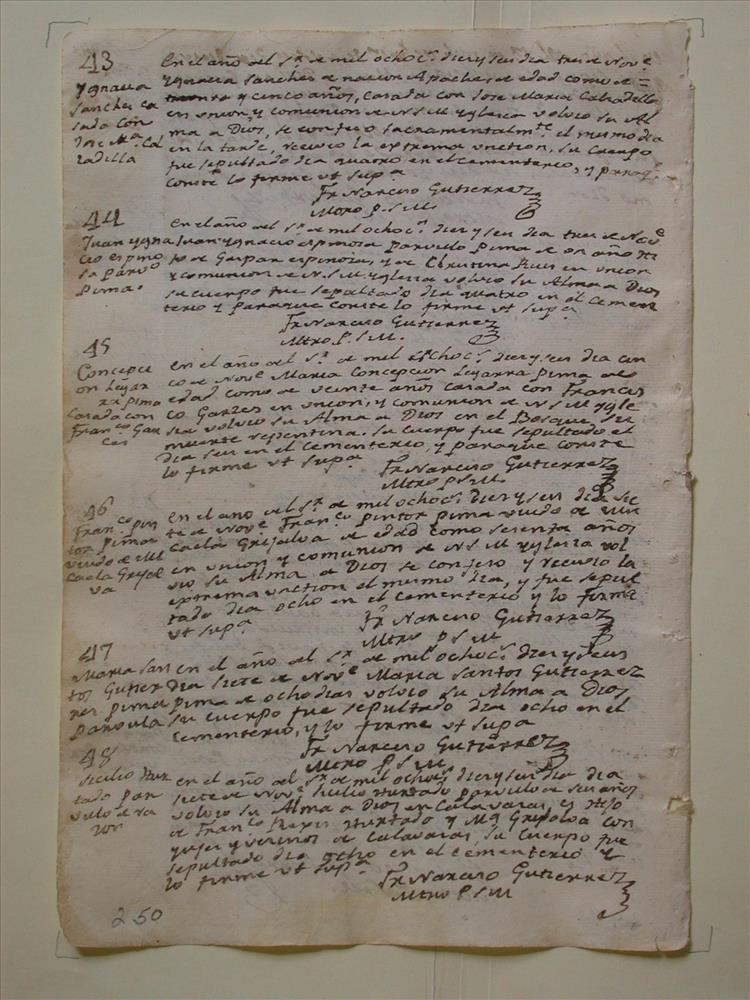 43
Ygnacia
Sanches ca
sada con
Jose Mª Cal
zadilla
En el año del Sr de mil ochocs dies y seis dia tres de Nove
Ygnacia Sanches de nacion Apache, de edad como de =
treinta y cinco años, casada con Jose Maria Calzadilla
en union, y comunion de N S M Yglesia volvio su Al
ma a Dios, se confeso sacramentalmte el mesmo dia
en la tarde, recivio la extrema uncion, su Cuerpo
fue sepultado dia quatro en el cementerio, y paraqe
conste lo firme vt supª
Fr Narciso Gutierrez
Mtro P. S. M.
44
Juan Ygna
cio espino
sa parvo
Pima.
En el año del Sr de mil ochocs dies y seis dia tres de Nove
Juan Ygnacio espinosa parvulo Pima de un año Hi
to de Gaspar espinosa, y de Christina Ruis en union
y comunion de N. S. M Yglesia volvio su Alma a Dios
su cuerpo fue sepultado dia quatro en el Cement
terio y paraque conste lo firme vt supª
Fr Narciso Gutierrez
Mtro P. S. M.
45
Concepci
on Ligar
ra pima
Casada con
Franco Gar
ces
en el año del Sr de mil ochocs dies y seis dia cin
co de Nove Maria Concepcion Ligarra Pima de
edad como de veinte años casada con Francis
co Garzes en union, y comunion de N S M Ygle
sia volvio su Alma a Dios en el Bosque, su
muerte repentina. su Cuerpo fue sepultado el
dia seis en el cementerio, y paraque conste
lo firme vt supª
Fr Narciso Gutierrez
Mtro P S M.
46
Franco pin
tor pima
viudo de Mi
caela Grijal
va
en el año del Sr de mil ochocs dies y seis dia sie
te de Nove Franco pintor pima viudo de Mi
caela Grijalva de edad como sesenta años
en union y comunion de N S M Yglesia vol
vio su Alma a Dios se confeso y recivio la
extrema uncion el mismo dia, y fue sepul
tado dia ocho en el cementerio y lo firme
vt supª
Fr Narciso Gutierrez
Mtro P S M
47
Maria San
tos Gutier
res pima
parvula
en el año del Sr de mil ochocs dies y seis
dia siete de Nove Maria Santos Gutierrez
pima de ocho dias volvio su Alma a Dios
su cuerpo fue sepultado dia ocho en el
cementerio, y lo firme vt supª
Fr Narciso Gutierrez
Mtro P. S M
48
Sicilio Hur
tado par
vulo de ra
zon
en el año del Sr de mil ochocs dies y seis dia
siete de Nove Sicilio Hurtado parvulo de seis años
volvio su Alma a Dios en Calavazas, es Hijo
de Franco Reyes Hurtado y Mª Grijalva con
yujes y vecinos de Calavazas, su Cuerpo fue
sepultado dia ocho en el cementerio y
lo firme vt supª
Fr Narciso Gutierrez
Mtro P S M
250